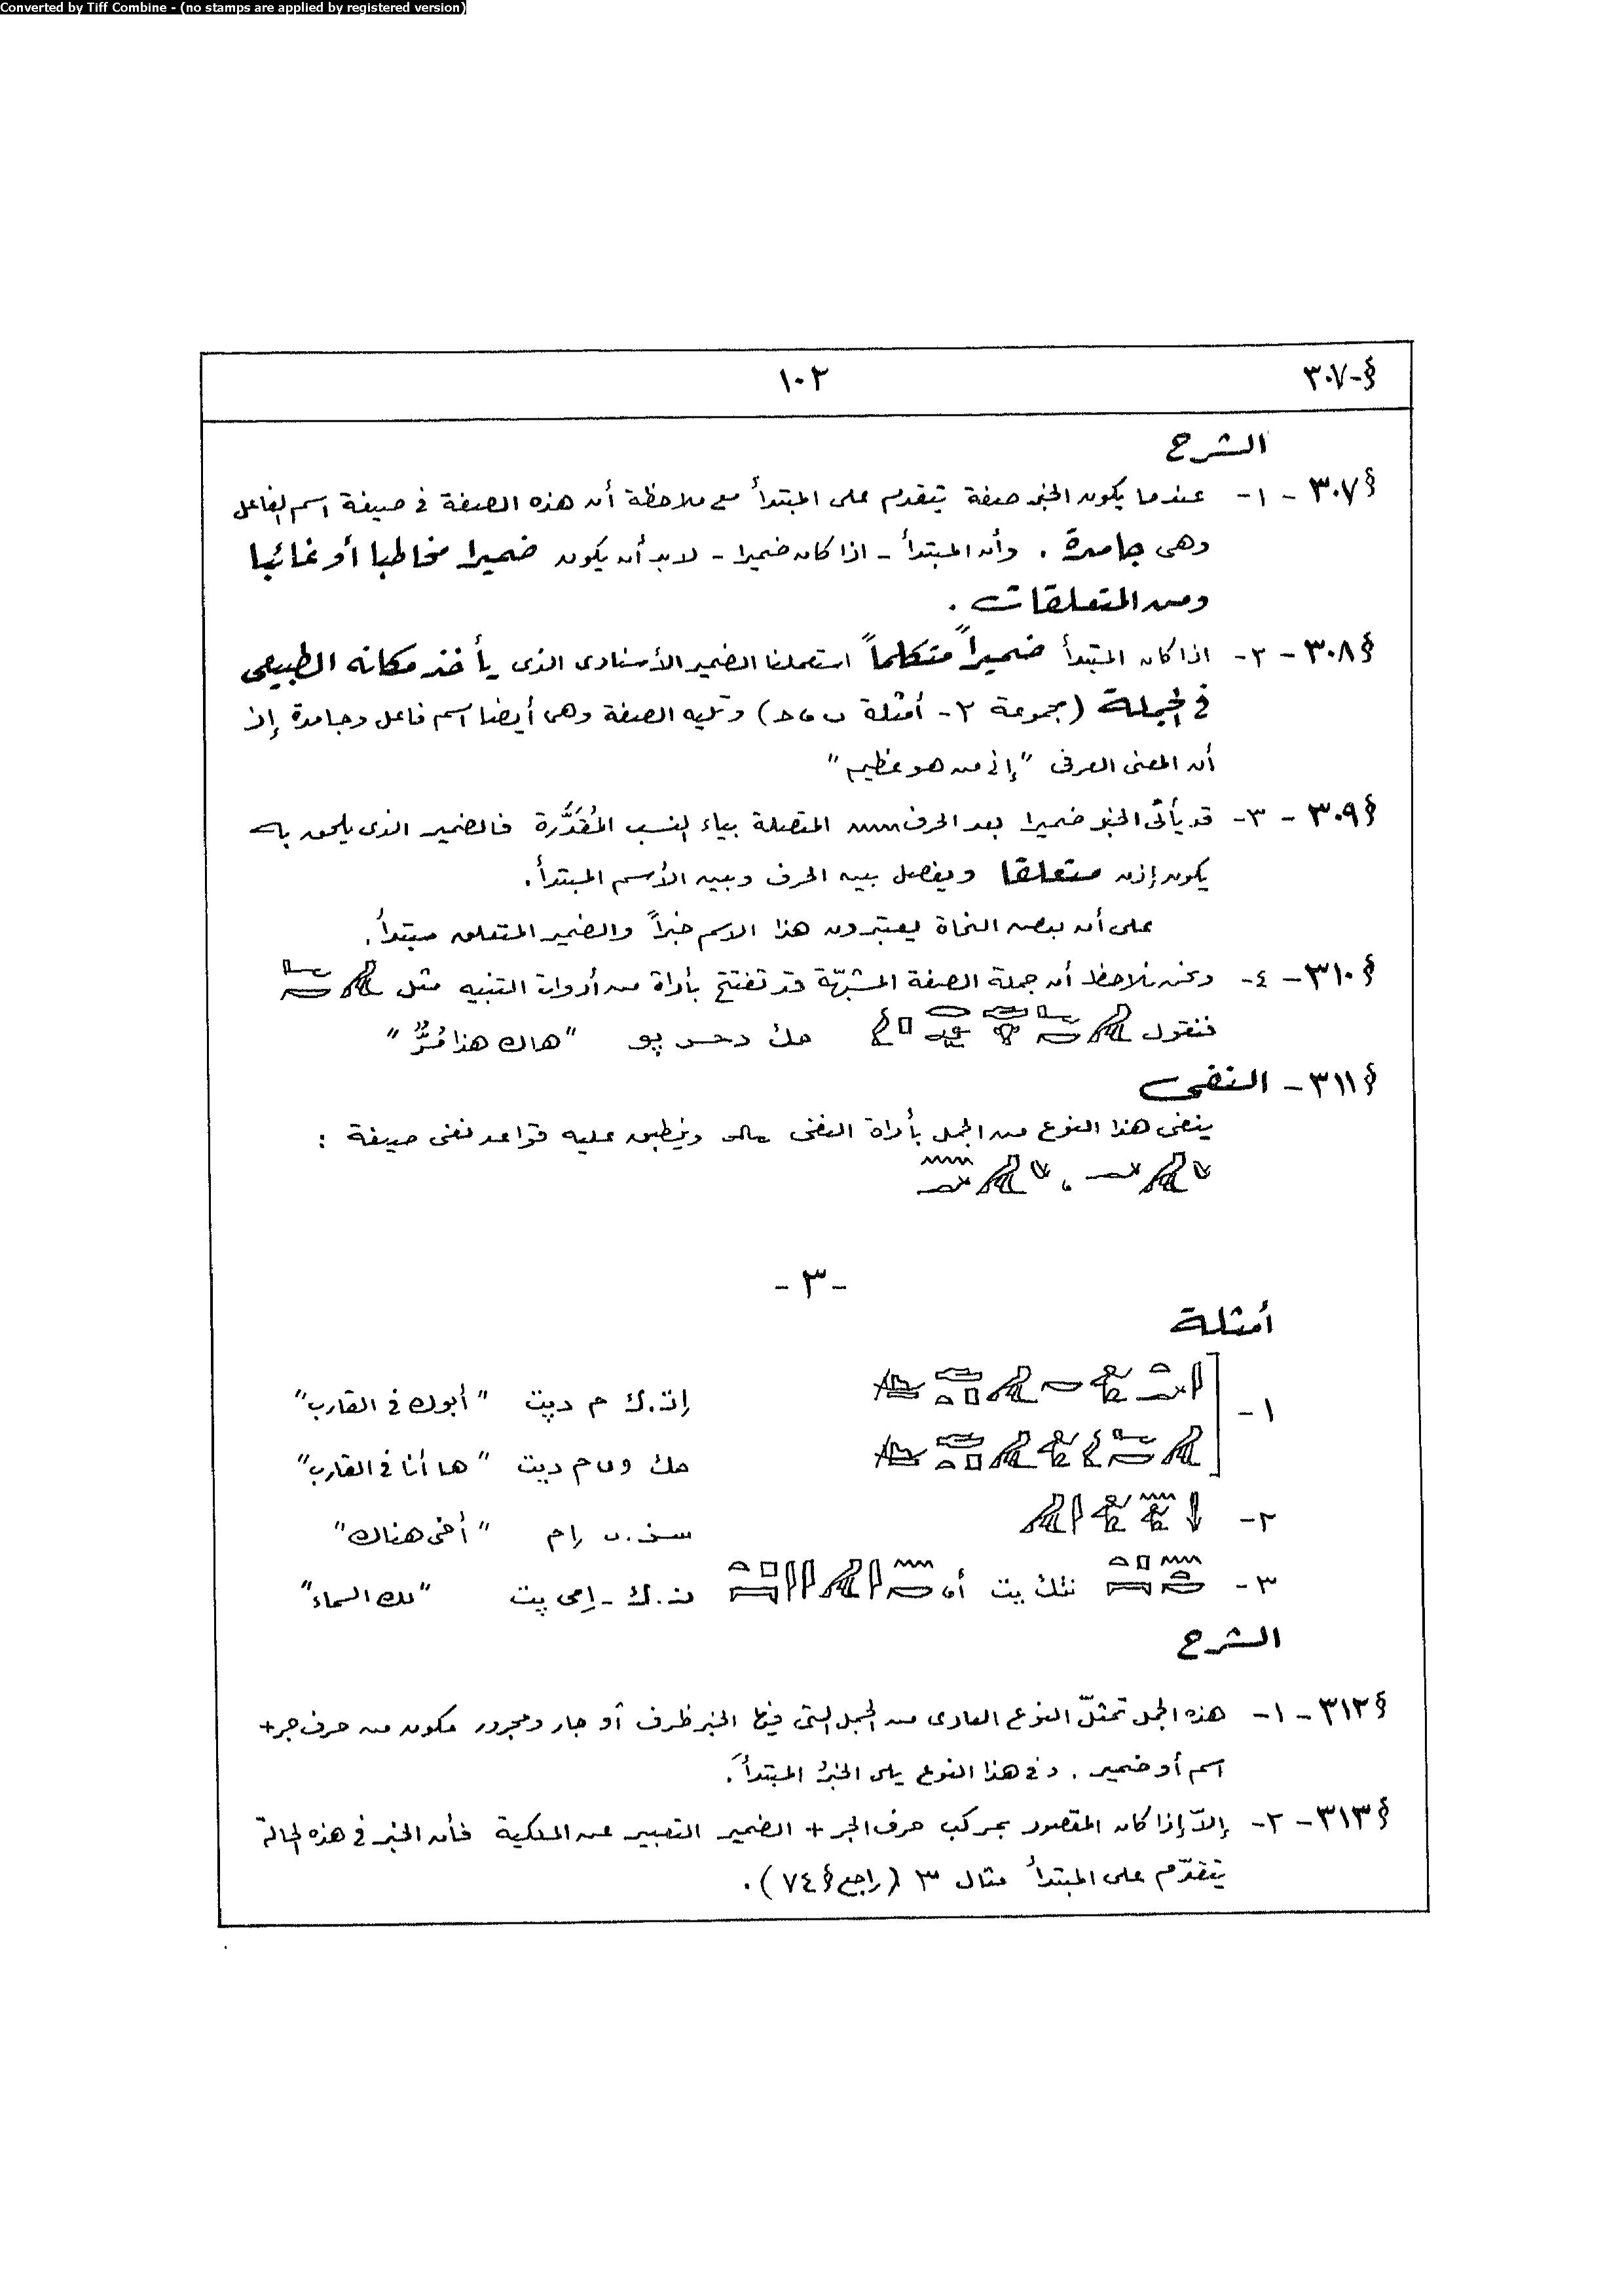 Converted by Tiff Combine - (no stamps are applied by registered version)
§-٣٠٧ ١٠٢
الشرح
§٣٠٧ - ١- عندما يكون الخبر صفة تتقدم على المبتدأ مع ملاحظة أن هذه الصفة فى صيغة اسم الفاعل
وهى جامدة . وأن المبتدأ - اذا كان ضميرا - لابد أن يكون ضميرا مخاطبا أو غائبا
ومن المتعلقات .
§٣٠٨ - ٢- اذا كان المبتدأ ضميراً متكلماً استعملنا الضمير الأسنادى الذى يأخذ مكانه الطبيعى
فى الجملة (مجموعة ٢- أمثلة ب، ح) وتليه الصفة وهى أيضا اسم فاعل وجامدة إذ
أن المعنى الحرفى "إنى من هو عظيم"
§٣٠٩ - ٣- قد يأتى الخبر ضميرا بعد الحرف المتصلة بياء النسب المُقدَّرة فالضمير الذى يلحق به
يكون إذن متعلقا ويفصل بين الحرف وبين الأسم المبتدأ.
على أن بعض النحاة يعتبرون هذا الاسم خبراً والضمير المتعلق مبتدأ.
§٣١٠ - ٤- ونحن نلاحظ أن جملة الصفة المشبّهة قد تفتتح بأداة من أدوات التنبيه مثل
فنقول مك دحر پو "هاك هذا مُرٌّ"
§٣١١ - النفى
ينفى هذا النوع من الجمل بأداة النفى وينطبق عليه قواعد نفى صيغة :
-٣-
أمثلة
١- إت.ك م دپت "أبوك فى القارب"
مك وى م دپت "ها أنا فى القارب"
٢- سن.ى إم "أخى هناك"
٣- نتك پت أو ن.ك - إمى پت "لك السماء"
الشرح
§٣١٢ - ١- هذه الجمل تمثّل النوع العادى من الجمل التى فيها الخبر ظرف أو جار ومجرور مكون من حرف جر+
اسم أو ضمير . وفى هذا النوع يلى الخبرُ المبتدأَ.
§٣١٣ - ٢- إلاّ إذا كان المقصود بمركب حرف الجر + الضمير التعبير عن الملكية فأن الخبر فى هذه الحالة
يتقدّم على المبتدأ مثال ٣ (راجع §٧٤).